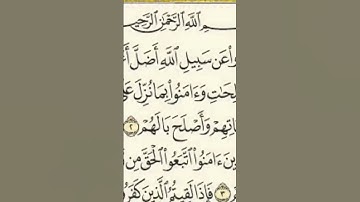 ـمِ ٱللَّهِ ٱلرَّحْمَٰنِ ٱلرَّحِيـ
وا۟ عَن سَبِيلِ ٱللَّهِ أَضَلَّ أَعْـ
ـلِحَٰتِ وَءَامَنُوا۟ بِمَا نُزِّلَ عَلَىٰ
ـَٔاتِهِمْ وَأَصْلَحَ بَالَهُمْ ٢
ـينَ ءَامَنُوا۟ ٱتَّبَعُوا۟ ٱلْحَقَّ مِن
٣ فَإِذَا لَقِيتُمُ ٱلَّذِينَ كَفَرُوا۟